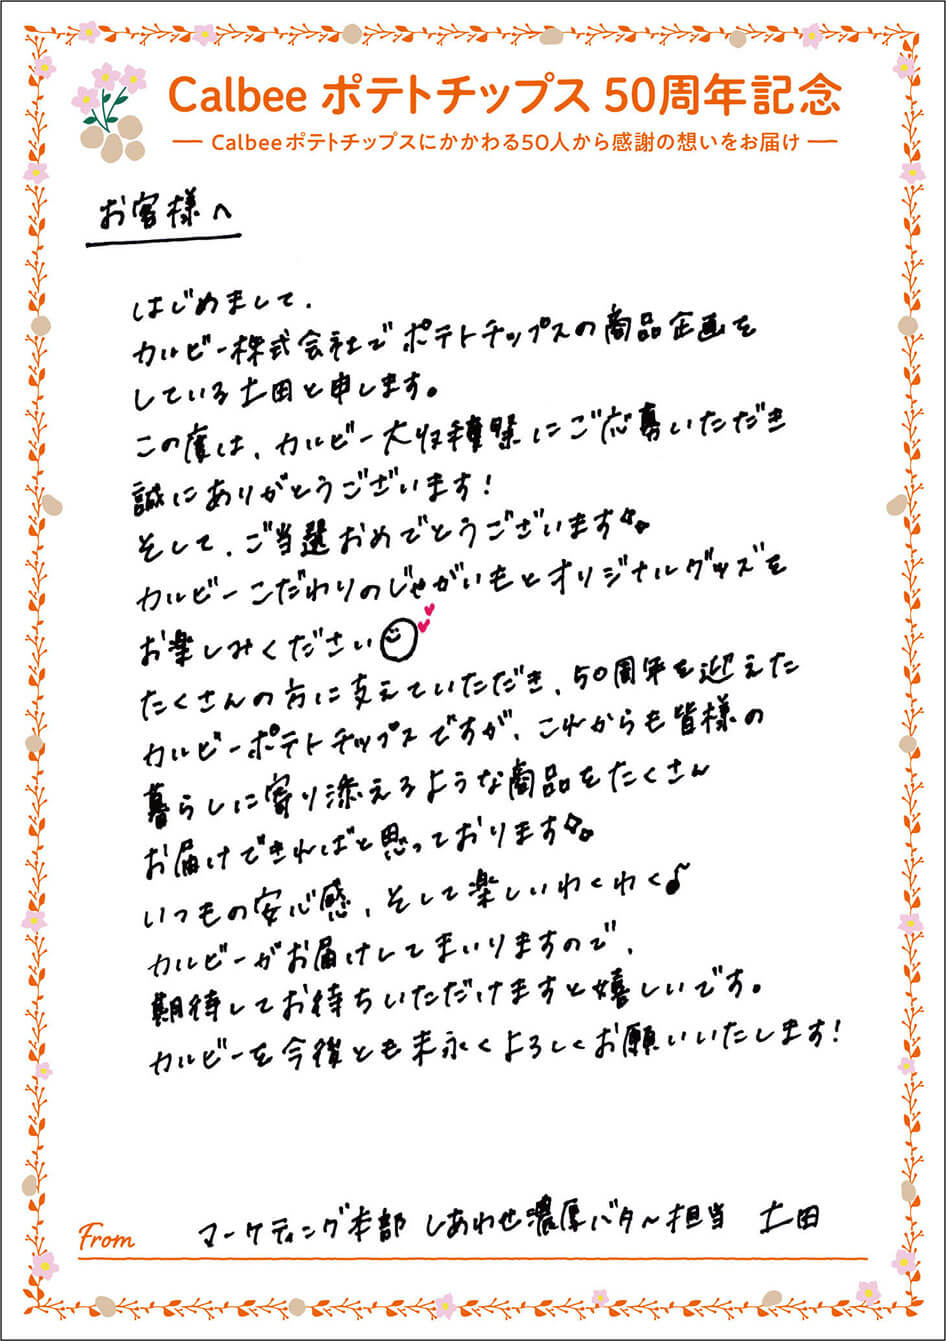 Calbee ポテトチップス 50周年記念
Calbeeポテトチップスにかかわる50人から感謝の想いをお届け
お客様へ
はじめまして、
カルビー株式会社でポテトチップスの商品企画を
している土田と申します。
この度は、カルビー大収穫祭にご応募いただき
誠にありがとうございます！
そして、ご当選おめでとうございます
カルビーこだわりのじゃがいもとオリジナルグッズを
お楽しみください
たくさんの方に支えていただき、50周年を迎えた
カルビーポテトチップスですが、これからも皆様の
暮らしに寄り添えるような商品をたくさん
お届けできればと思っております
いつもの安心感、そして楽しいわくわく♪
カルビーがお届けしてまいりますので、
期待してお待ちいただけますと嬉しいです。
カルビーを今後とも末永くよろしくお願いいたします！
From マーケティング本部 しあわせ濃厚バター担当 土田